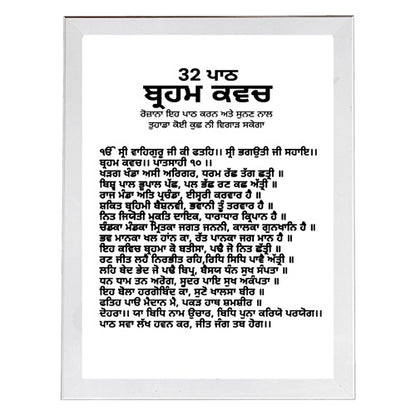 32 ਪਾਠ
ਬ੍ਰਹਮ ਕਵਚ
ਰੋਜ਼ਾਨਾ ਇਹ ਪਾਠ ਕਰਨ ਅਤੇ ਸੁਨਣ ਨਾਲ
ਤੁਹਾਡਾ ਕੋਈ ਕੁਛ ਨੀ ਵਿਗਾੜ ਸਕੇਗਾ
ੴ ਸ੍ਰੀ ਵਾਹਿਗੁਰੂ ਜੀ ਕੀ ਫਤਹਿ।। ਸ੍ਰੀ ਭਗਉਤੀ ਜੀ ਸਹਾਇ।।
ਬ੍ਰਹਮ ਕਵਚ।। ਪਾਤਸਾਹੀ ੧੦ ।।
ਖੜਗ ਖੰਡਾ ਅਸੀ ਅਰਿਗਰ, ਧਰਮ ਰੱਛ ਤੱਗ ਛਤ੍ਰੀ ॥
ਬਿਧੂ ਪਾਲ ਭੂਪਾਲ ਪੱਛ, ਪਲ ਭੱਛ ਰਣ ਕਛ ਅੱਤ੍ਰੀ ॥
ਰਾਜ ਮੰਡਾ ਅਤਿ ਪ੍ਰਚੰਡਾ, ਈਸੁਰੀ ਕਰਵਾਰ ਹੈ ॥
ਸ਼ਕਿਤ ਬ੍ਰਹਿਮੀ ਬੈਸ਼ਨਵੀ, ਭਵਾਨੀ ਤੂੰ ਤਰਵਾਰ ਹੈ ॥
ਨਿਤ ਜਿਯੋਤੀ ਮੁਕਤਿ ਦਾਇਕ, ਧਾਰਾਧਾਰ ਕ੍ਰਿਪਾਨ ਹੈ ॥
ਚੰਡਕਾ ਮੰਡਕਾ ਮ੍ਰਿਤਕਾ ਜਗਤ ਜਨਨੀ, ਕਾਲਕਾ ਗੁਨਖਾਨਿ ਹੈ ॥
ਭਵ ਮਾਨਕਾ ਖਲ ਹਾਂਨ ਕਾ, ਰੱਤ ਪਾਨਕਾ ਜਗ ਮਾਨ ਹੈ ॥
ਇਹ ਕਵਿਚ ਬ੍ਰਹਮਾ ਕੋ ਬਤੀਸਾ, ਪਢੈ ਜੋ ਨਿਤ ਛੱਤ੍ਰੀ ॥
ਰਣ ਜੀਤ ਲਹੈ ਨਿਰਭੀਤ ਰਹਿ,ਰਿਧਿ ਸਿਧਿ ਪਾਵੈ ਅੱਤ੍ਰੀ ॥
ਲਹਿ ਬੇਦ ਭੇਦ ਜੋ ਪਢੈ ਬਿਪ੍ਰ, ਬੈਸਯ ਧੰਨ ਸੁਖ ਸੰਪਤਾ ॥
ਧਨ ਧਾਮ ਤਨ ਅਰੋਗ, ਸੂਦਰ ਪਾਇ ਸੁਖ ਅਕੰਪਤਾ ॥
ਇਹ ਬੇਲਾ ਹਰਗੋਬਿੰਦ ਕਾ, ਸੁਣੋ ਖਾਲਸਾ ਬੀਰ ॥
ਫਤਿਹ ਪਾਓ ਮੈਦਾਨ ਮੈ, ਪਕੜ ਹਾਥ ਸ਼ਮਸ਼ੀਰ ॥
ਦੋਹਰਾ।। ਯਾ ਬਿਧਿ ਨਾਮ ਉਚਾਰ, ਬਿਧਿ ਪੁਨਾ ਕਰਿਯੋ ਪਰਯੋਗ।।
ਪਾਠ ਸਵਾ ਲੱਖ ਹਵਨ ਕਰ, ਜੀਤ ਜੰਗ ਤਬ ਹੋਗ।।